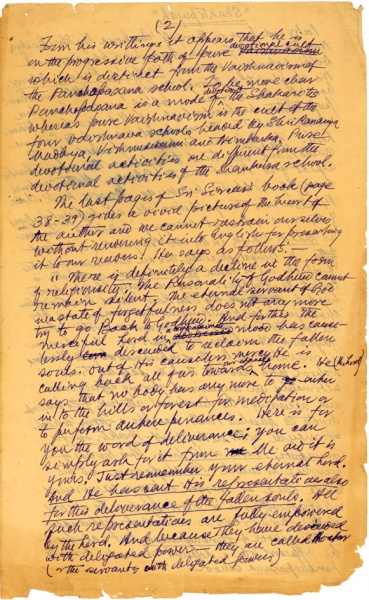 (2)
From his writhings it appears that he is
on the progressive path of pure devotional cult
which is distinct from the Vaishnavism of
the Panchopasana school. To be more clear
Panchopasana is a mode of devotion in the Shakarite
whereas pure Vaishnavism is the cult of the
four Vaishnava schools headed by Shri Ramanuja
Madhya, Vishnuswami and Nimbarka. Pure
devotional activities are different from the
devotional activities of the Shankara school.
The last pages of Sri Sircar's book (page
38-39) gives a vivid picture of the heart of
the author and we cannot restrain ourselves
without rendering it into English for presenting
it to our readers. He says as follows:—
"There is definitely a decline in the form
of religiosity. The Personality of Godhead cannot
remain silent. The eternal servant of God
in a state of forgetfulness does not any more
try to go Back to Godhead. And further the
merciful Lord in moods has cause-
lessly descended to reclaim the fallen
souls. Out of His causeless mercy He is
calling back all of us towards home. He (the Lord)
says that no body has any more to enter
in to the hills or forest for meditation or
to perform austere penances. Here is for
you the word of deliverance; you can
simply ask for it from me and it is
yours. Just remember your eternal Lord.
And He has sent His representatives also
for this deliverance of the fallen souls. All
such representatives are fully empowered
by the Lord. And because they have descended
with delegated power — they are called
(or the servants with delegated powers)